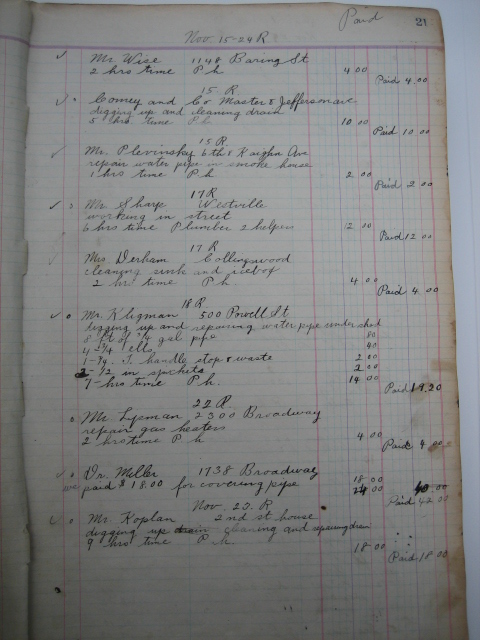 Paid 21
Nov. 15-24 R
Mr Wise 1148 Baring St
2 hrs time P h 4 00
Paid 4.00
15 R
Comey and Co Master & Jefferson ave
digging up and cleaning drain
5 hrs time P h 10 00
Paid 10 00
15 R
Mr. Plevinsky 6th & Kaighn Ave
repair water pipe in smoke house
1 hrs time P h 2 00
Paid 2 00
17 R
Mr Sharp Westville
working in street
6 hrs time Plumber 2 helpers 12 00
Paid 12 00
17 R
Mrs Derham Collingswood
cleaning sink and icebox
2 hrs time P h 4 00
Paid 4 00
18 R
Mr. Kligman 500 Powell St
digging up and repairing water pipe under shed
8 ft of 3/4 gal pipe 80
4 3/4 ells 40
1-3/4 T. handle stop & waste 2 00
1/2 in sockets 2 00
7- hrs time P h. 14 00
Paid 19.20
22 R.
Mr. Lipman 2300 Broadway
repair gas heaters
2 hrs time P h 4.00
Paid 4 00
Dr. Miller 1738 Broadway 18 00
we paid $18.00 for covering pipe 24 00
Paid 42 00
Nov. 23. R
Mr. Koplan 2nd st house
digging up drain cleaning and repairing drain
9 hrs time P h. 18 00
Paid 18 00